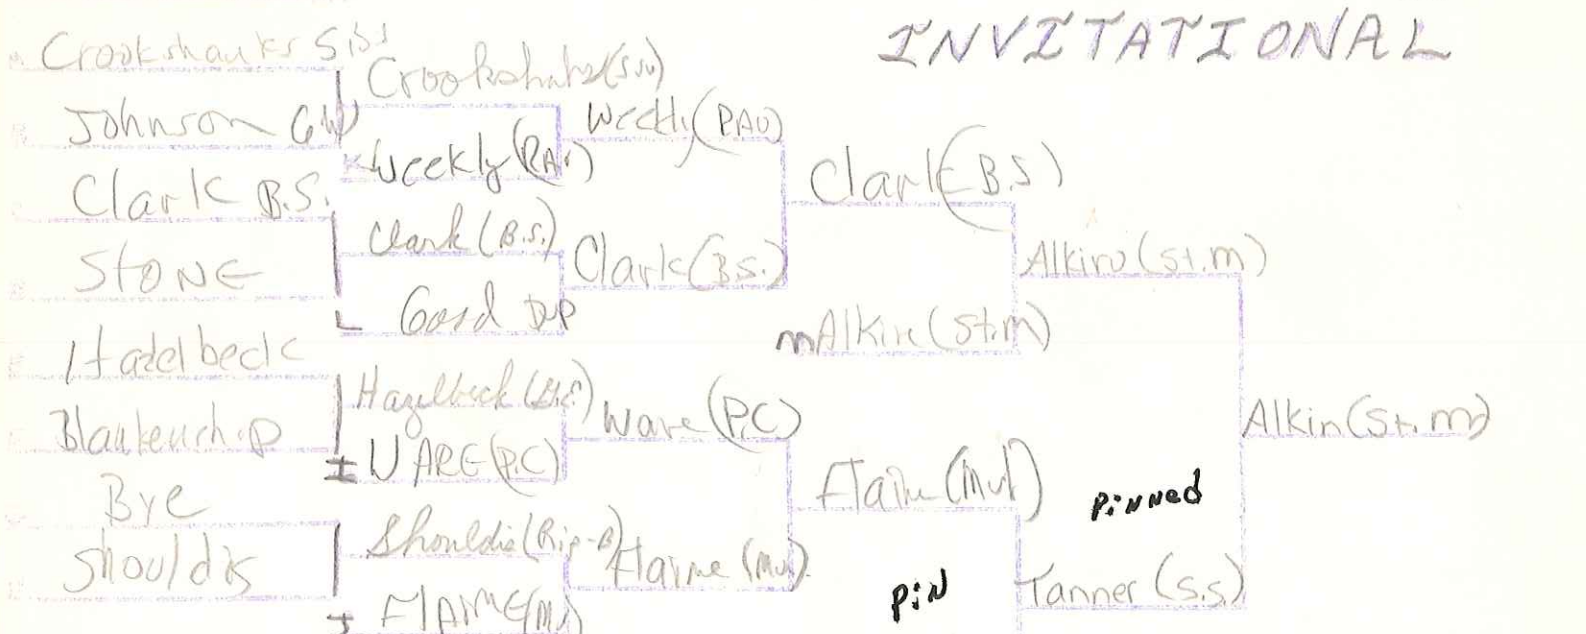 INVITATIONAL
Crookshanks
Johnson GW
Clark B.S.
STONE
Hazelbeck
Blankenship
Bye
Shouldis
Weekly
Clark (B.S.)
Good
Hazelbeck
WARE (P.C)
Shouldis (Rip-B)
FLAIME
Weekly
Clark (B.S.)
Ware (P.C)
Flaime
Clark (B.S)
Alkire (St.m)
Flaime
PiN
Alkire (St.m)
PiNNed
Tanner (S.S.)
Alkin (St.m)